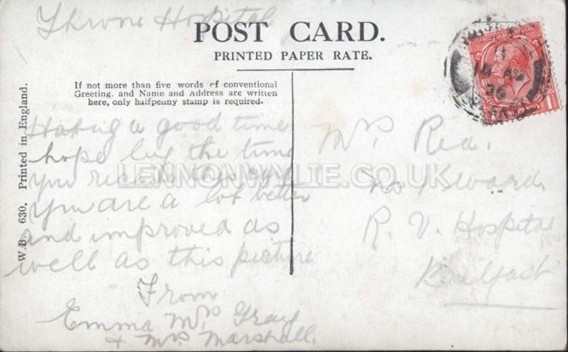 Throne Hospital
POST CARD.
PRINTED PAPER RATE.
If not more than five words of conventional
Greeting and Name and Address are written
here, only halfpenny stamp is required.
W.B. 630. Printed in England.
Having a good time
hope by the time
you receive this
you are a lot better
and improved as
well as this picture
From
Emma Mrs Gray
& Mrs Marshall.
Mrs Reid.
No Ward
R. V. Hospital
Belfast
LENNONWYLIE.CO.UK